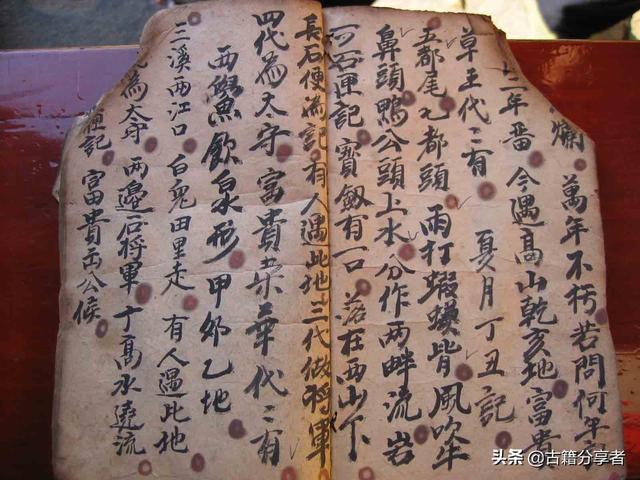 爛 萬年不朽若問何年
二年番 今遇高山乾亥地富貴
草王代〻有 夏月丁丑記
五都尾七都頭 雨打蝦蟆背風吹牛
鼻頭鴨公頭上水分作兩畔流岩
石匣記 寶劔有一口 落在西山下
長石便為記 有人遇此地三代做將軍
四代為太守 富貴榮華代〻有
西鱉飲泉形 甲卯乙地
三溪兩江口 白兔田里走 有人遇此地
為太守 兩邊石將軍 于高水遶流
匣記 富貴出公候
头条 @古籍分享者